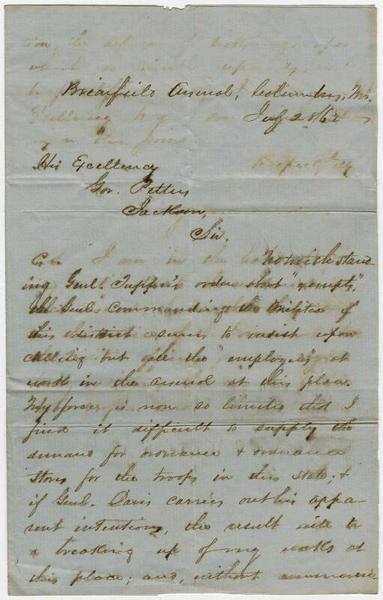 Briarfield Arsenal, Columbus, Mi.
July 2 1862
His Excellency
Gov. Pettus
Jackson,
Sir,
Notwithstand
ing Genl. Tupper's orders about "exempts",
the Genl. Commanding the Militia of
this district desires to insist upon
calling out all the "employés" at
work in the arsenal at this place.
My force is now so limited that I
find it difficult to supply the
demand for ordnance & ordnance
stores for the troops in this State; &
if Genl. Davis carries out his appa
rent intentions, the result will be
a breaking up of my works at
this place; and, without ammuni